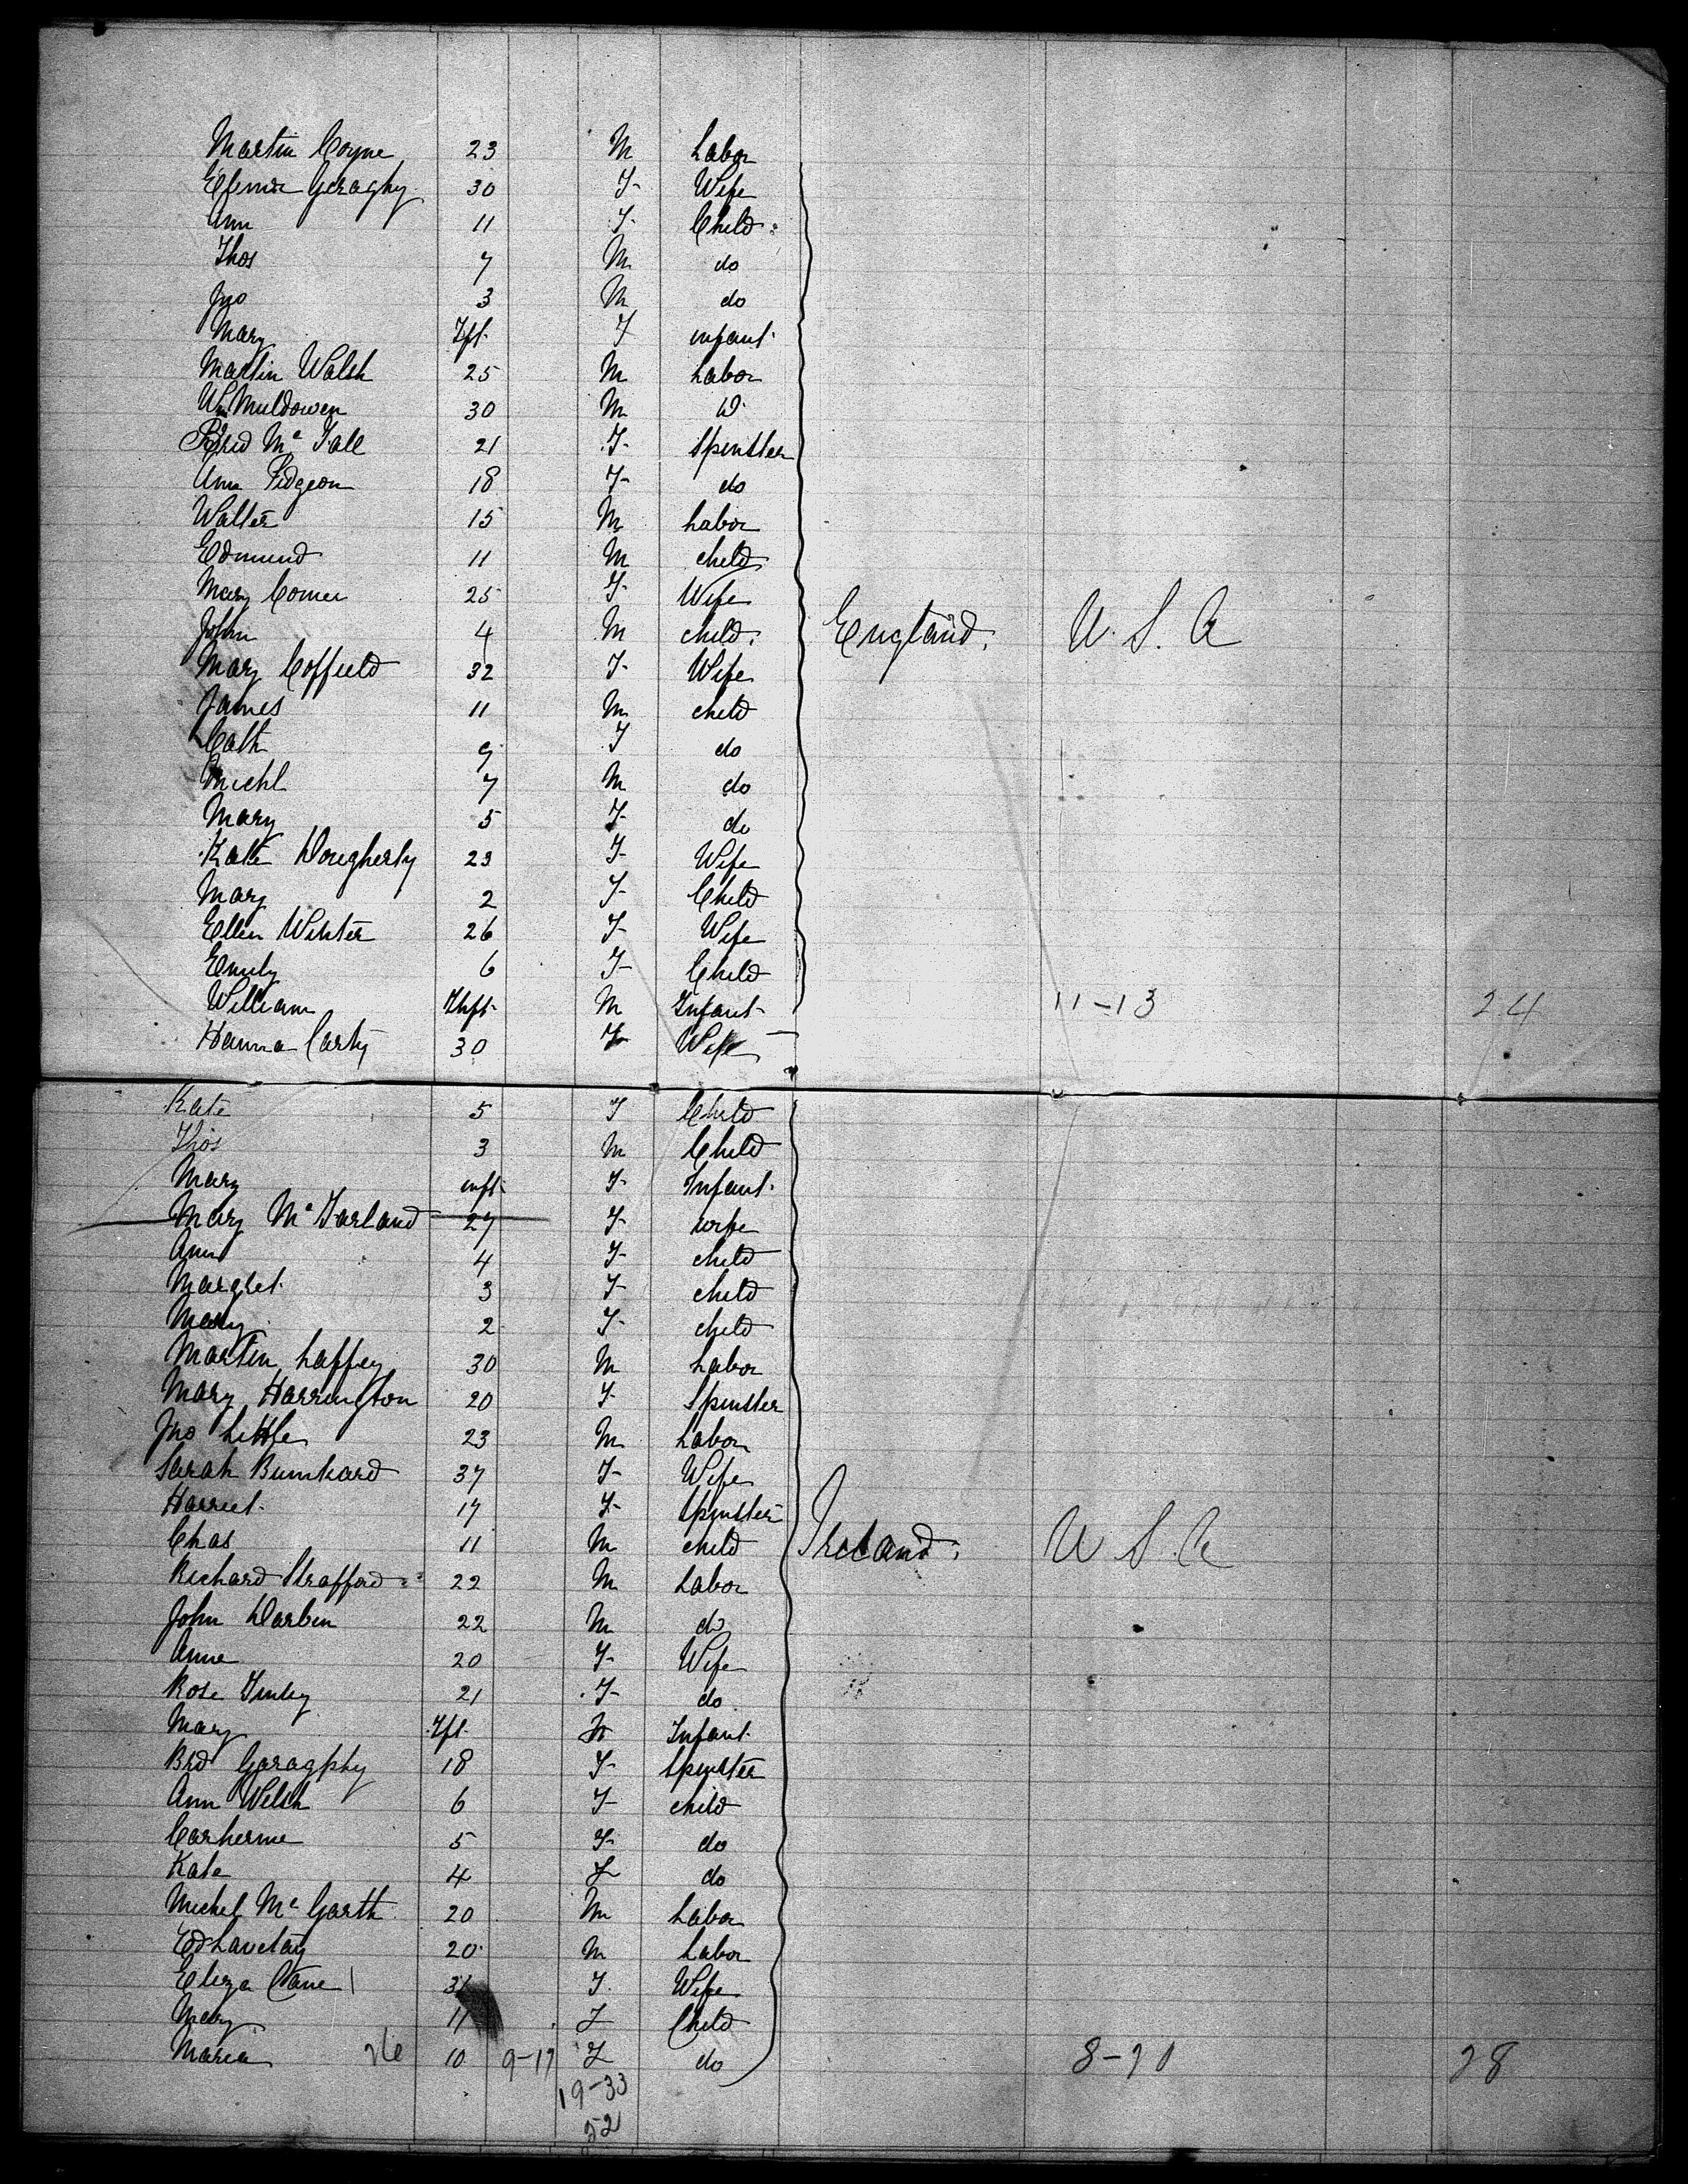 Martin Coyne 23 M Labor
Efemia Geraghy 30 F Wife
Ann 11 F Child
Thos 7 M do
Jno 3 M do
Mary Ift. F infant
Martin Walsh 25 M Labor
Wm Muldowen 30 M D
Brid Mc Fall 21 F Spinster
Ann Pidgeon 18 F do
Walter 15 M Labor
Edmund 11 M child
Mary Comer 25 F Wife
John 4 M child England. U. S. A
Mary Coffield 32 F Wife
James 11 M child
Cath 9 F do
Michl 7 M do
Mary 5 F do
Kate Dougherty 23 F Wife
Mary 2 F Child
Ellen Winter 26 F Wife
Emily 6 F Child
William Inft. M Infant 11-13 24
Hanna Carty 30 F Wife
Kate 5 F Child
Thos 3 M Child
Mary inft F Infant
Mary Mc Farland 27 F wife
Ann 4 F child
Margret 3 F child
Mary 2 F child
Martin Laffey 30 M Labor
Mary Harrington 20 F Spinster
Jno Little 23 M Labor
Sarah Bumkard 37 F Wife
Harriet 17 F Spinster
Chas 11 M child Ireland. U S. A
Richard Strafford 22 M Labor
John Darbin 22 M do
Anne 20 F Wife
Rose Finley 21 F do
Mary Ift. Infant
Brd Garagphy 18 F Spinster
Ann Welsh 6 F child
Carherine 5 F do
Kate 4 F do
Michel Mc Garth 20 M Labor
Ed Lavelay 20 M Labor
Eliza Cane F Wife
Mary 11 F Child
Maria 10 9-17 F do 8-20 28
19-33
52